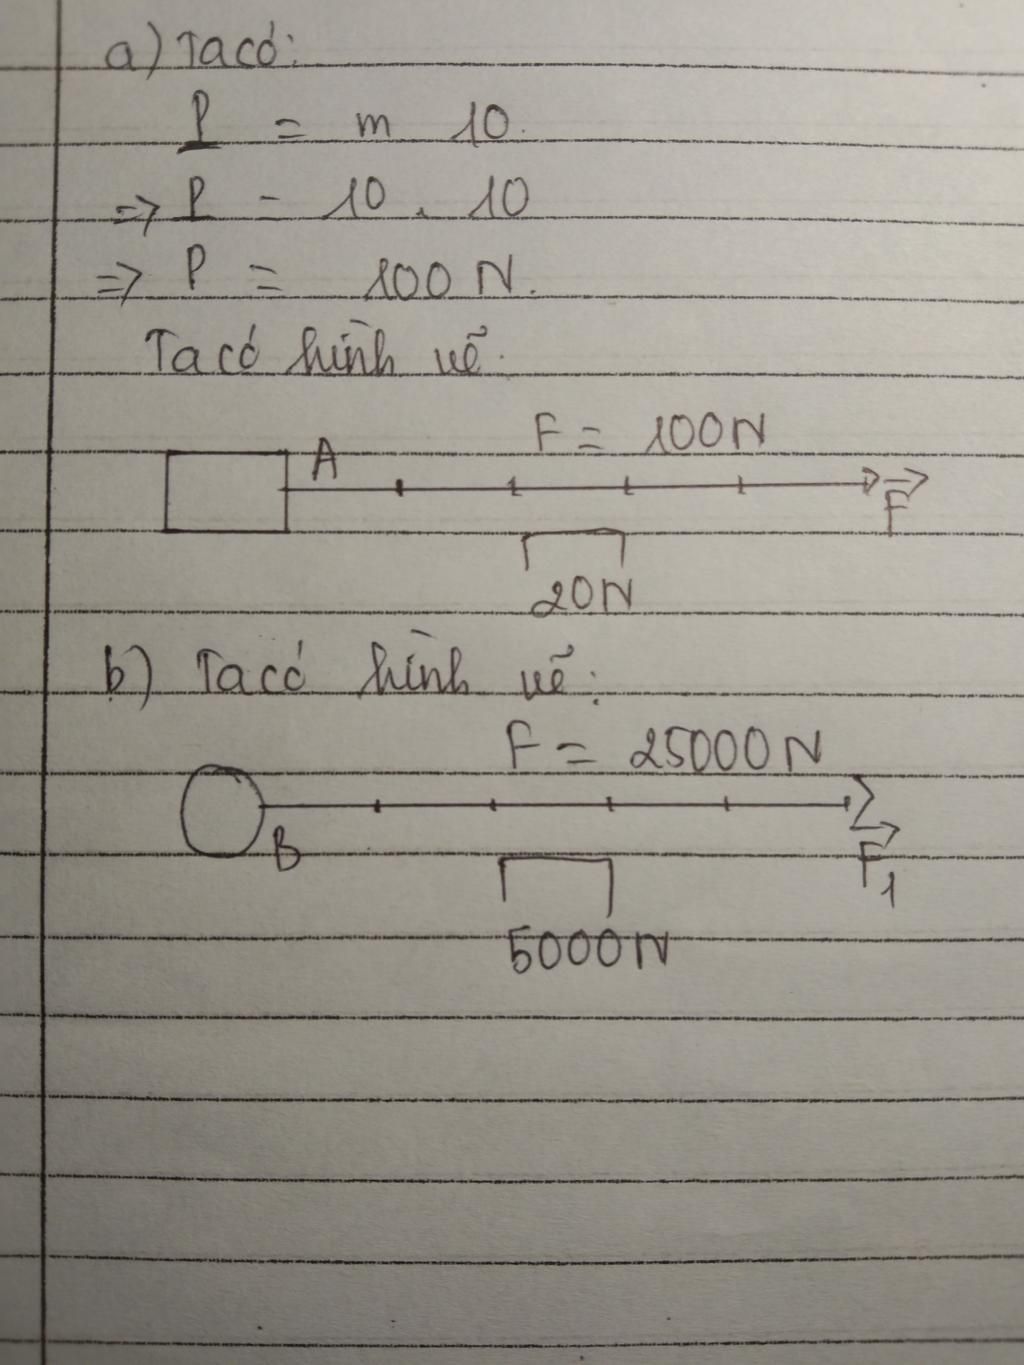 a) Ta có:
P = m 10.
=> P = 10 . 10
=> P = 100 N.
Ta có hình vẽ.
F = 100N
A
F
20N
b) Ta có hình vẽ:
F = 25000N
B
F1
5000N